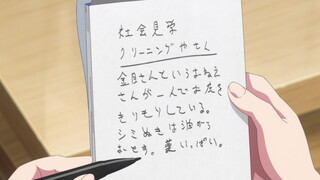 社会見学
クリーニングやさん
金目さんというおねえ
さんが一人でお店を
きりもりしている。
シミぬきは油から
おとす。薬いっぱい。